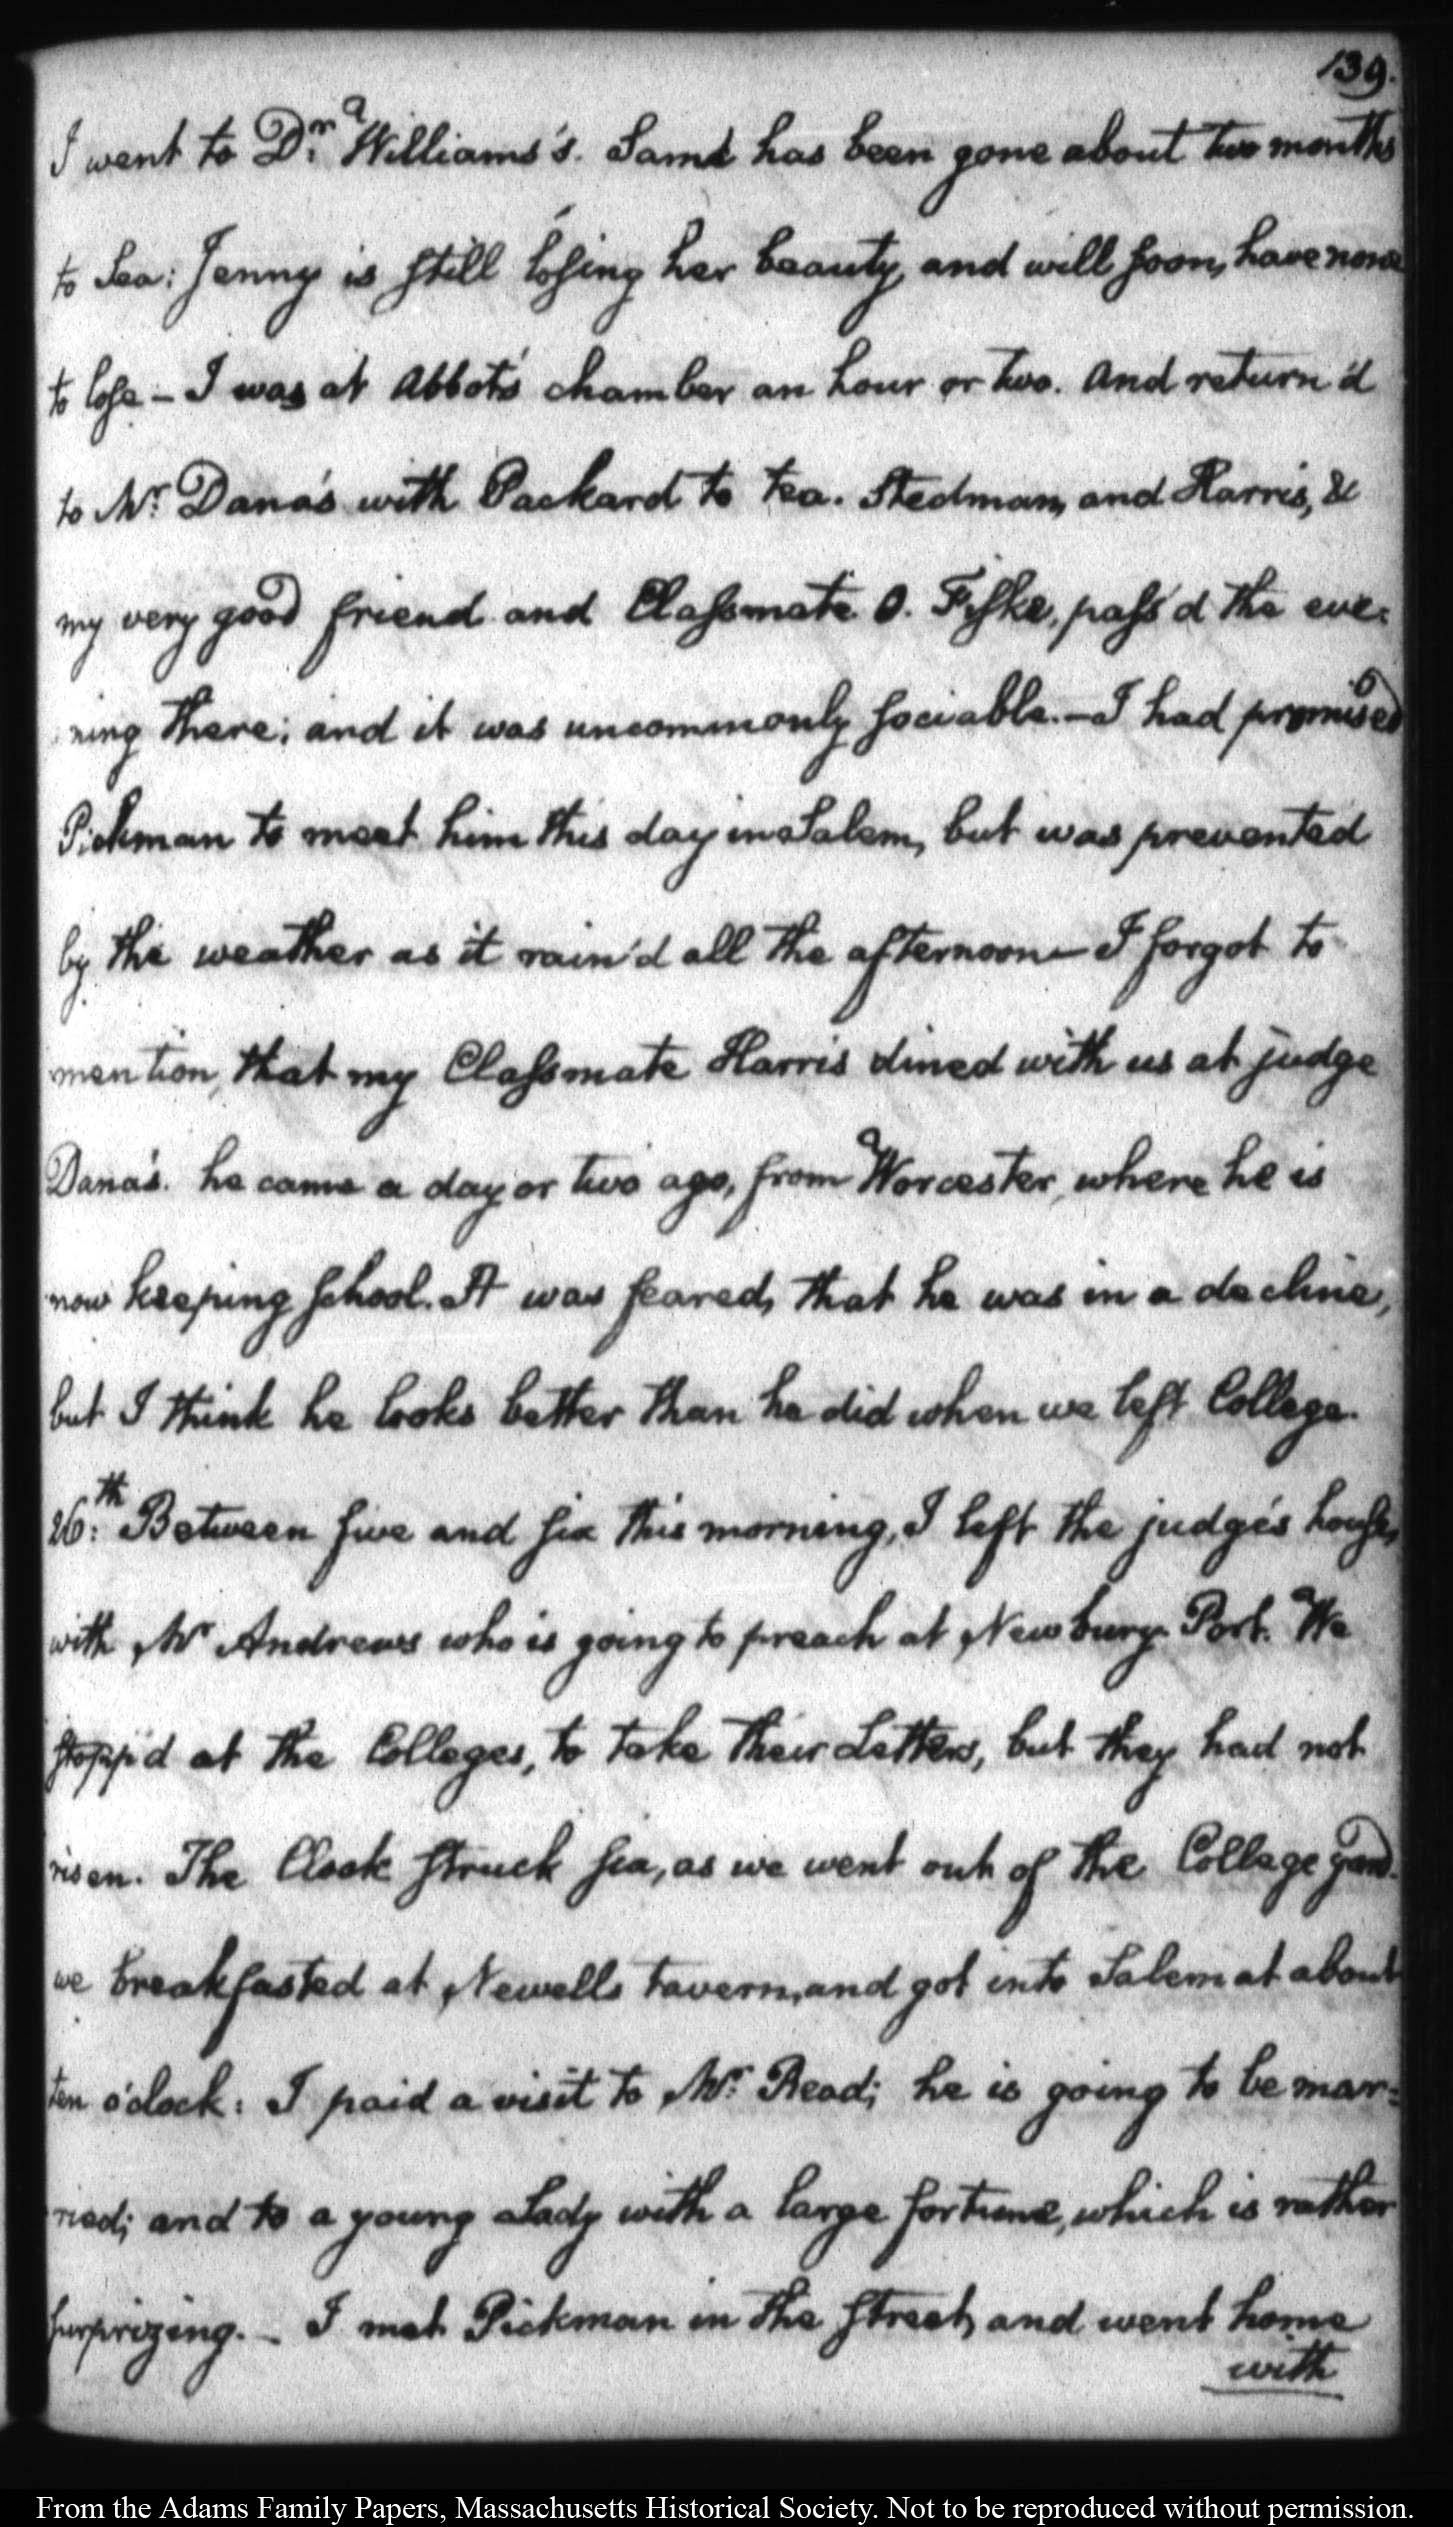 139.
I went to Dr. Williams's. Sam has been gone about two months
to Sea: Jenny is still losing her beauty, and will soon, have none
to lose – I was at Abbot's chamber an hour or two. And return'd
to Mr. Dana's with Packard to tea. Stedman, and Harris, &
my very good friend and Classmate O. Fiske, pass'd the eve:
ning there; and it was uncommonly sociable. – I had promised
Pickman to meet him this day in Salem, but was prevented
by the weather as it rain'd all the afternoon – I forgot to
mention, that my Classmate Harris dined with us at judge
Dana's. he came a day or two ago, from Worcester, where he is
now keeping school. It was feared, that he was in a decline,
but I think he looks better than he did when we left College.
26:th Between five and six this morning, I left the judge's house,
with Mr Andrews who is going to preach at Newbury-Port. We
stopp'd at the Colleges, to take their Letters, but they had not
risen. The Clock struck six, as we went out of the College yard.
we breakfasted at Newell's tavern, and got into Salem at about
ten o'clock: I paid a visit to Mr. Read; he is going to be mar:
ried; and to a young Lady with a large fortune, which is rather
surprizing. – I met Pickman in the street, and went home
with
From the Adams Family Papers, Massachusetts Historical Society. Not to be reproduced without permission.